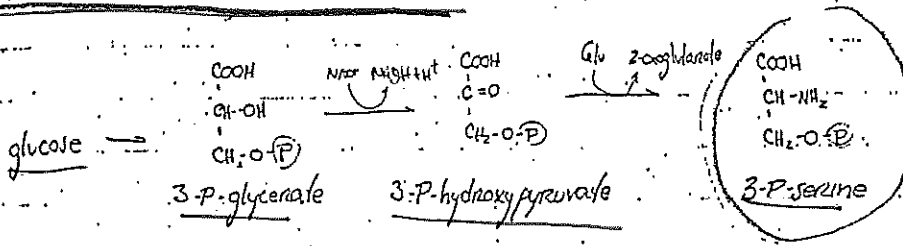 COOH
CH-OH
CH₂-O-Ⓟ
glucose →
3-P-glycerate
NAD⁺ NADH+H⁺
COOH
C=O
CH₂-O-Ⓟ
3-P-hydroxypyruvate
Glu 2-oxoglutarate
COOH
CH-NH₂
CH₂-O-Ⓟ
3-P-serine